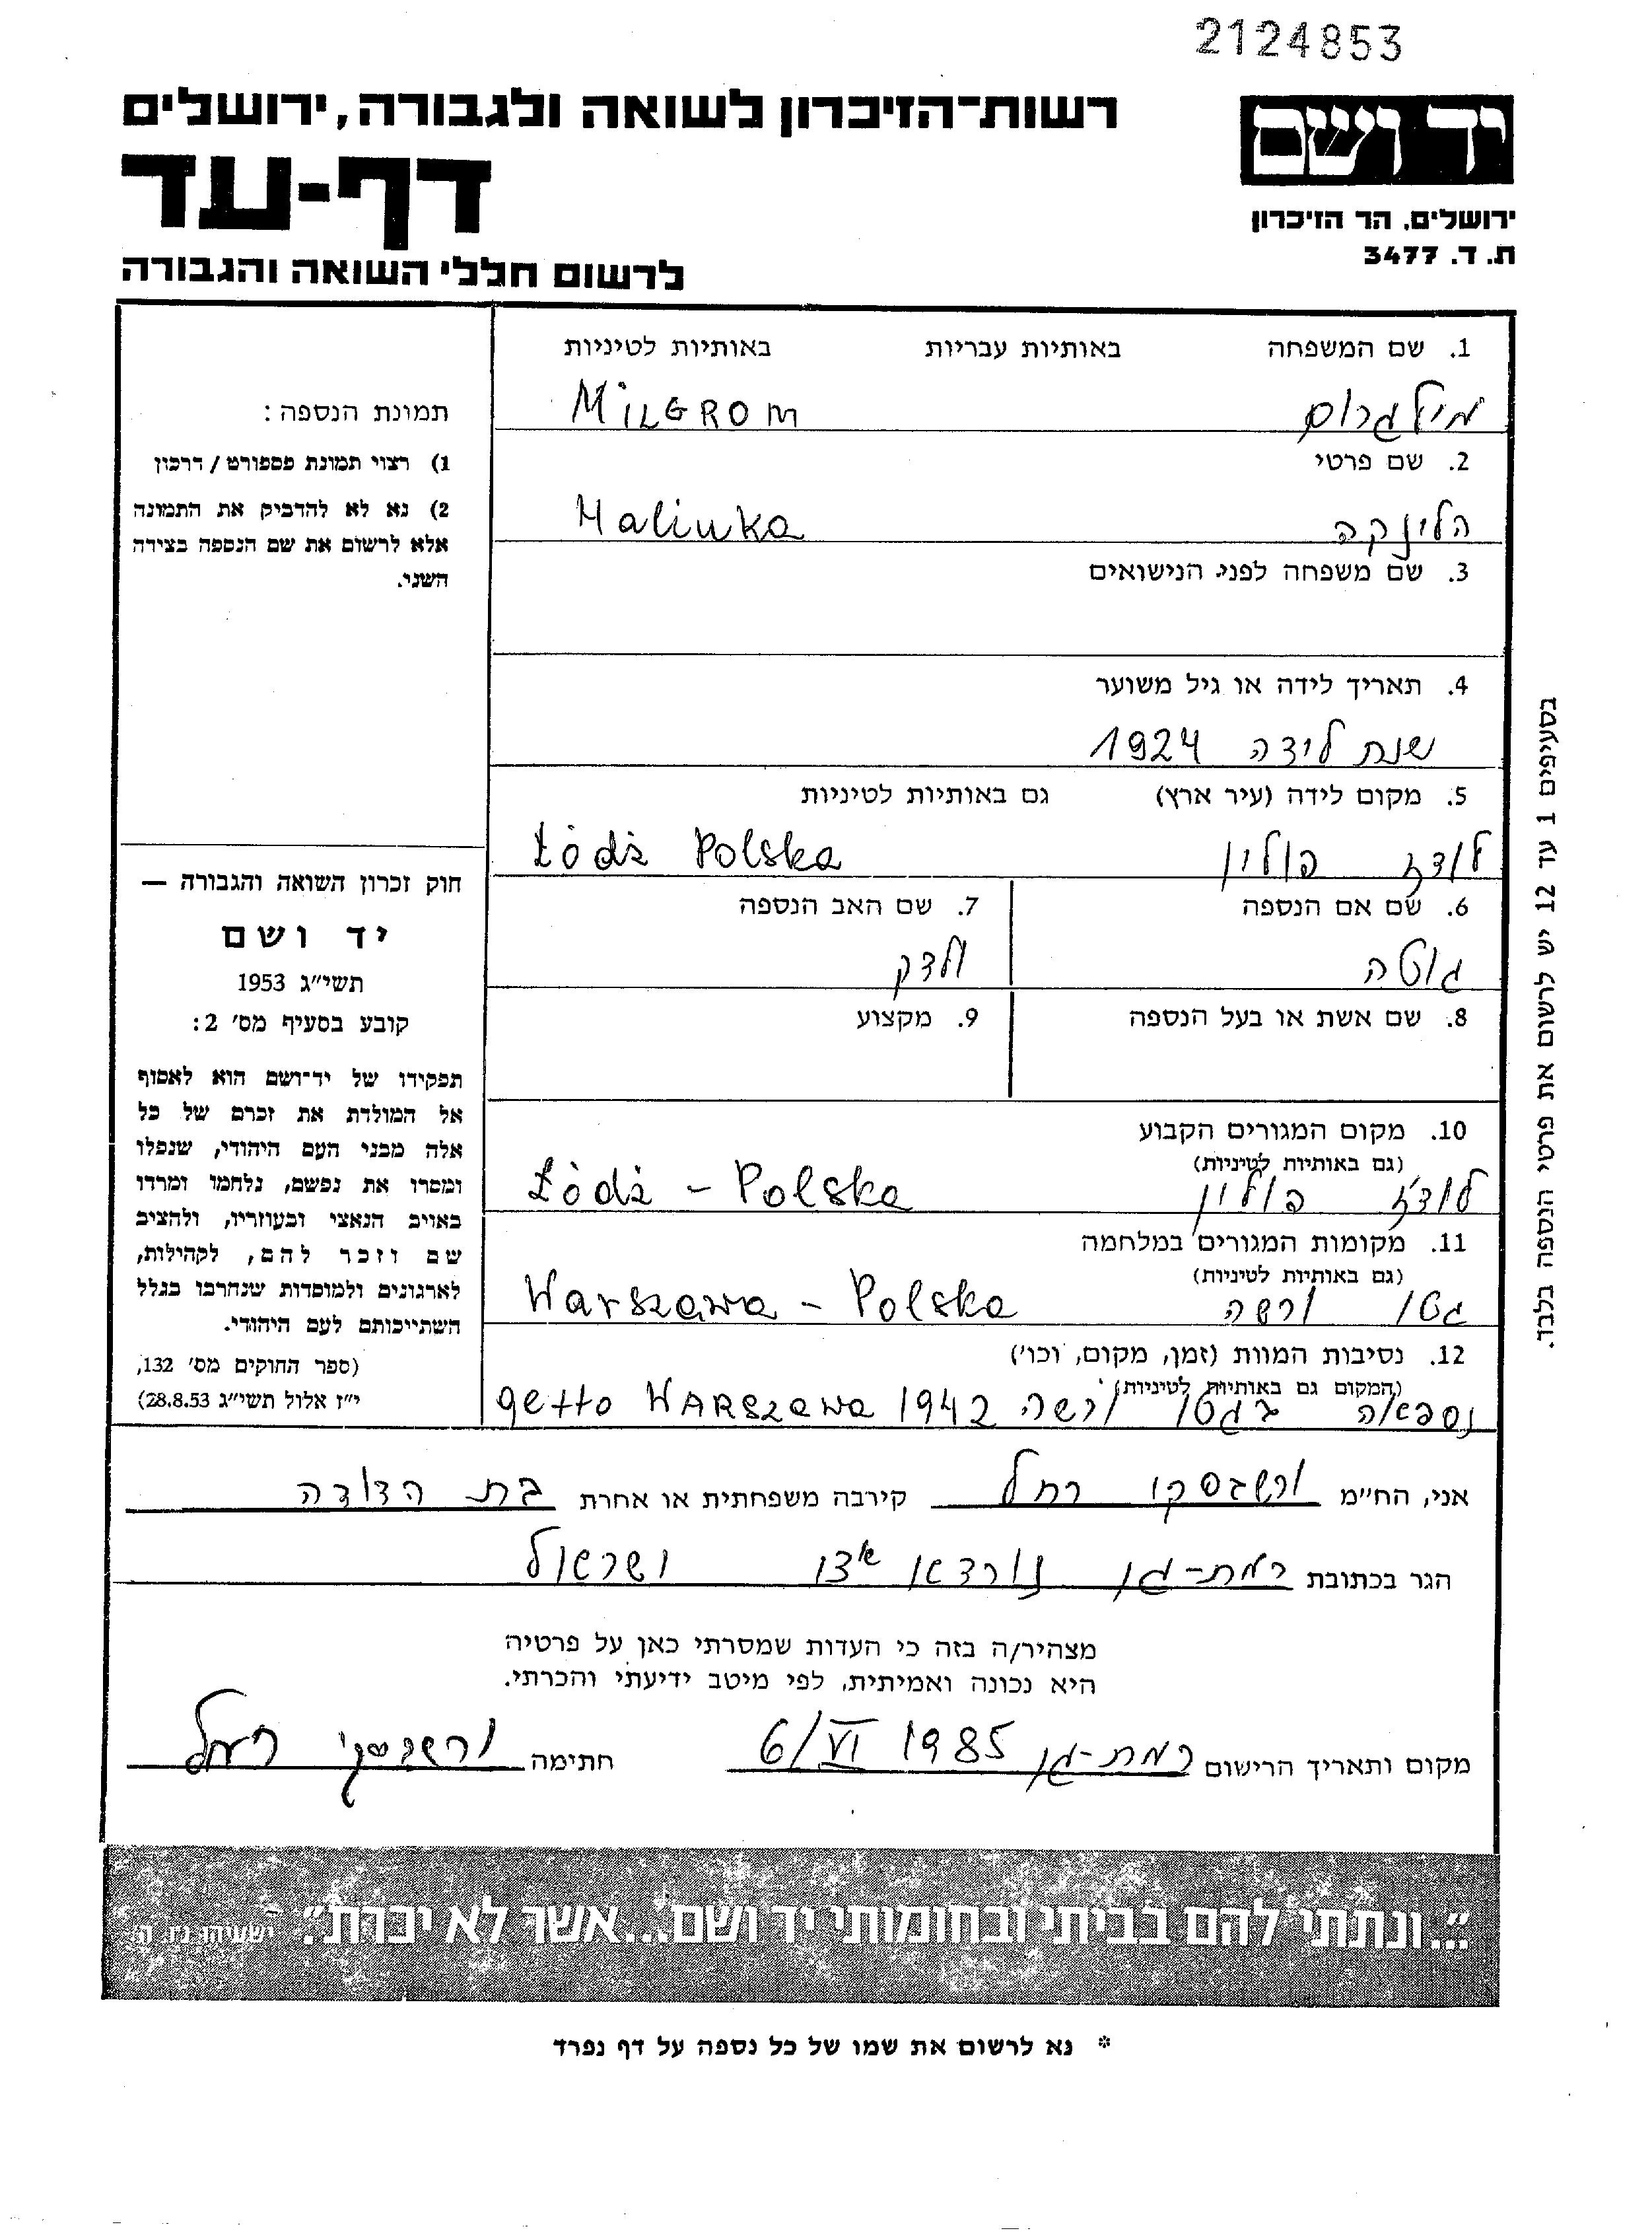 2124853
יד ושם
ירושלים, הר הזיכרון
ת. ד. 3477
רשות-הזיכרון לשואה ולגבורה, ירושלים
דף-עד
לרשום חללי השואה והגבורה
1. שם המשפחה באותיות עבריות באותיות לטיניות
מילגרום MiLGROM
2. שם פרטי
הלינקה Halinka
3. שם משפחה לפני הנישואים
4. תאריך לידה או גיל משוער
שנת לידה 1924
5. מקום לידה (עיר ארץ) גם באותיות לטיניות
לודז פולין Łódż Polska
6. שם אם הנספה 7. שם האב הנספה
גוטה ולדק
8. שם אשת או בעל הנספה 9. מקצוע
10. מקום המגורים הקבוע
(גם באותיות לטיניות)
לודז' פולין Łódż - Polska
11. מקומות המגורים במלחמה
(גם באותיות לטיניות)
גטו ורשה Warszawa - Polska
12. נסיבות המוות (זמן, מקום, וכו')
(המקום גם באותיות לטיניות)
בגטו ורשה 1942 getto WARSzawa
תמונת הנספה:
1) רצוי תמונת פספורט / דרכון
2) נא לא להדביק את התמונה
אלא לרשום את שם הנספה בצידה
השני.
חוק זכרון השואה והגבורה —
יד ושם
תשי״ג 1953
קובע בסעיף מס׳ 2:
תפקידו של יד־ושם הוא לאסוף
אל המולדת את זכרם של כל
אלה מבני העם היהודי, שנפלו
ומסרו את נפשם, נלחמו ומרדו
באויב הנאצי ובעוזריו, ולהציב
שם וזכר להם, לקהילות,
לארגונים ולמוסדות שנחרבו בגלל
השתייכותם לעם היהודי.
(ספר החוקים מס׳ 132,
י״ז אלול תשי״ג 28.8.53)
בסעיפים 1 עד 12 יש לרשום את פרטי הנספה בלבד.
אני, החי״מ ורשבסקי רחל קירבה משפחתית או אחרת בת הדודה
הגר בכתובת רמת-גן נורדאו ישראל
מצהיר/ה בזה כי העדות שמסרתי כאן על פרטיה
היא נכונה ואמיתית, לפי מיטב ידיעתי והכרתי.
מקום ותאריך הרישום רמת-גן 6/VI 1985 חתימה ורשבסקי רחל
״...ונתתי להם בביתי ובחומותי יד ושם...אשר לא יכרת״. ישעיהו נ״ו, ה׳
* נא לרשום את שמו של כל נספה על דף נפרד